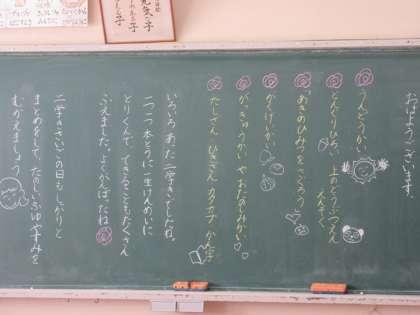 おはようございます。
うんどうかい
どんぐりひろい 上のどうぶつえん
えんそく
あきのひみつをさぐろう
かけっかい
がっきゅうかい やおたのみかい
たしざん ひきざん カタカナ かん字
いろいろあった二学きでしたね。
一つ一つ本とうに一生けんめいに
とりくんで、できることもたくさん
ふえました。よくがんばったね
二学きさいごの日も しっかりと
まとめをして、たのしいふゆやすみを
むかえましょう
元気な子